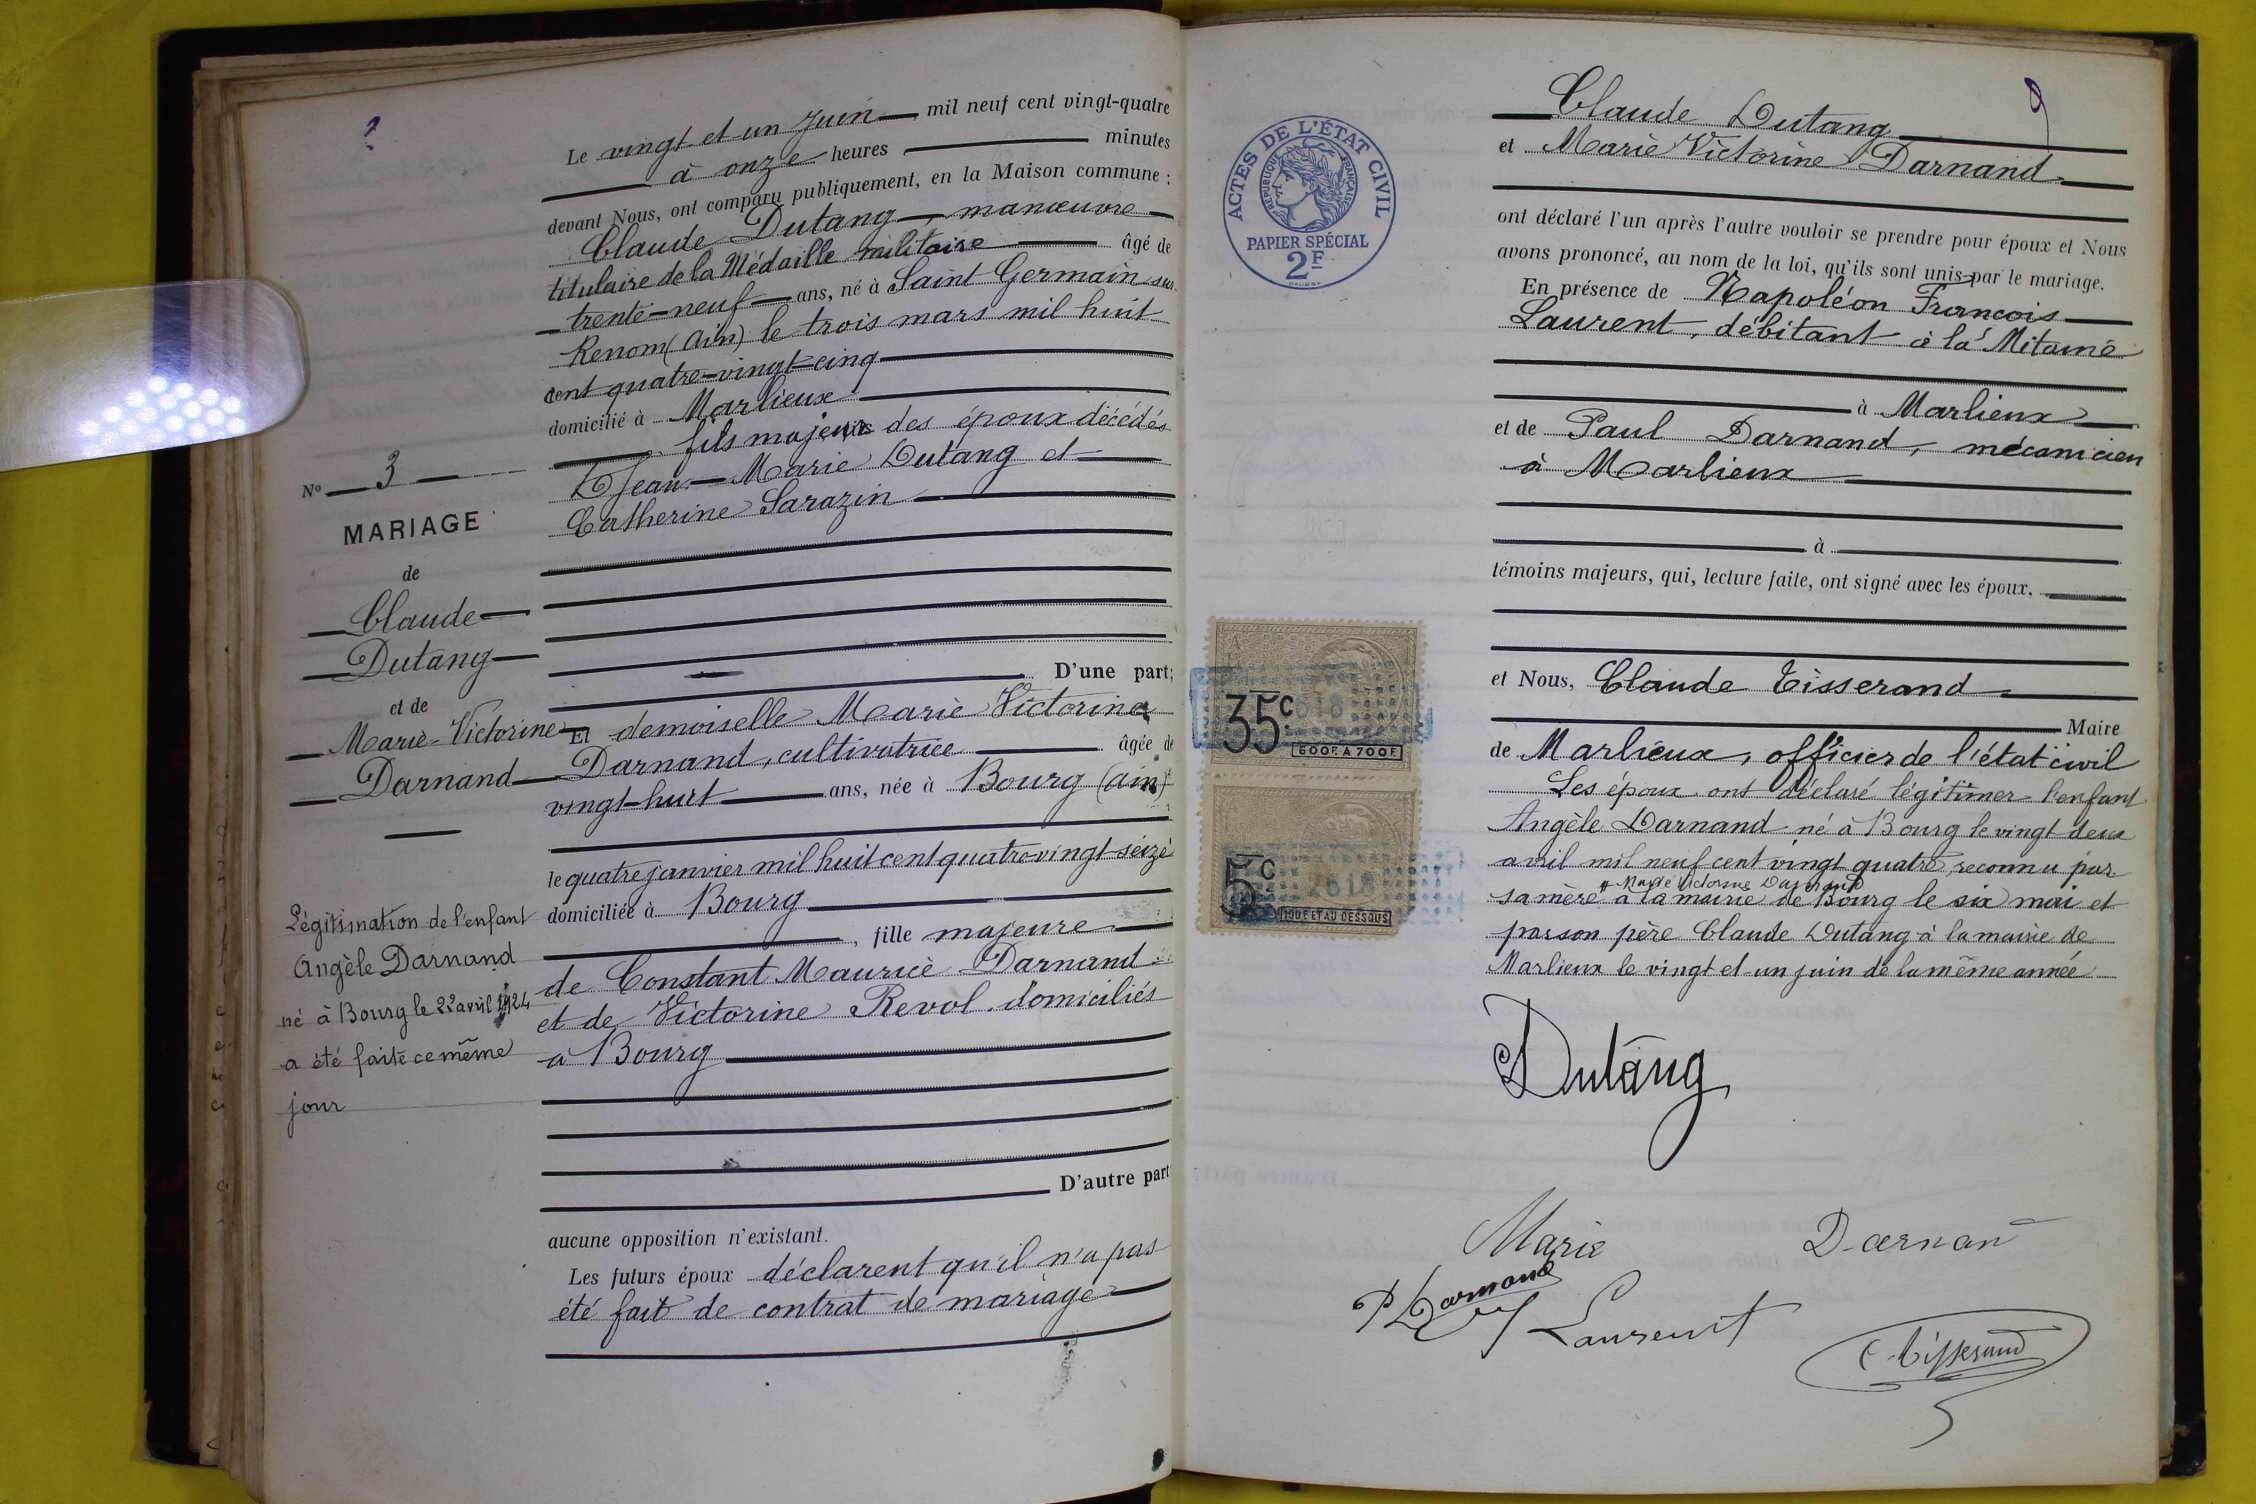 Le vingt et un Juin mil neuf cent vingt-quatre
à onze heures minutes
devant Nous, ont comparu publiquement, en la Maison commune :
Claude Dutang, manœuvre
titulaire de la Médaille militaire âgé de
trente-neuf ans, né à Saint Germain-sur-
Renom (Ain) le trois mars mil huit
cent quatre-vingt-cinq
domicilié à Marlieux
fils majeur des époux décédés
Jean-Marie Dutang et
Catherine Sarazin
D'une part;
Et demoiselle Marie Victorine
Darnand, cultivatrice âgée de
vingt-huit ans, née à Bourg (ain)
le quatre janvier mil huit cent quatre-vingt-seize
domiciliée à Bourg
, fille majeure
de Constant Maurice Darnand
et de Victorine Revol domiciliés
à Bourg
D'autre part
aucune opposition n'existant.
Les futurs époux déclarent qu'il n'a pas
été fait de contrat de mariage
No 3
MARIAGE
de
Claude
Dutang
et de
Marie-Victorine
Darnand
Légitimation de l'enfant
Angèle Darnand
né à Bourg le 22 avril 1924
a été faite ce même
jour
9
Claude Dutang
et Marie Victorine Darnand
ont déclaré l'un après l'autre vouloir se prendre pour époux et Nous
avons prononcé, au nom de la loi, qu'ils sont unis par le mariage.
En présence de Napoléon François
Laurent, débitant à la Mitaine
à Marlieux
et de Paul Darnand, mécanicien
à Marlieux
à
témoins majeurs, qui, lecture faite, ont signé avec les époux.
et Nous, Claude Tisserand
Maire
de Marlieux, officier de l'état civil
Les époux ont déclaré légitimer l'enfant
Angèle Darnand né à Bourg le vingt deux
avril mil neuf cent vingt quatre, reconnu par
Marie Victorine Darnand
sa mère à la mairie de Bourg le six mai et
par son père Claude Dutang à la mairie de
Marlieux le vingt et un juin de la même année
Dutang
Marie Darnan
P Darnand
Laurent
C. Tisserand
ACTES DE L'ÉTAT CIVIL
RÉPUBLIQUE FRANÇAISE
PAPIER SPÉCIAL
2F
35c
600F. A 700F.
5c
2618
100F. ET AU DESSOUS